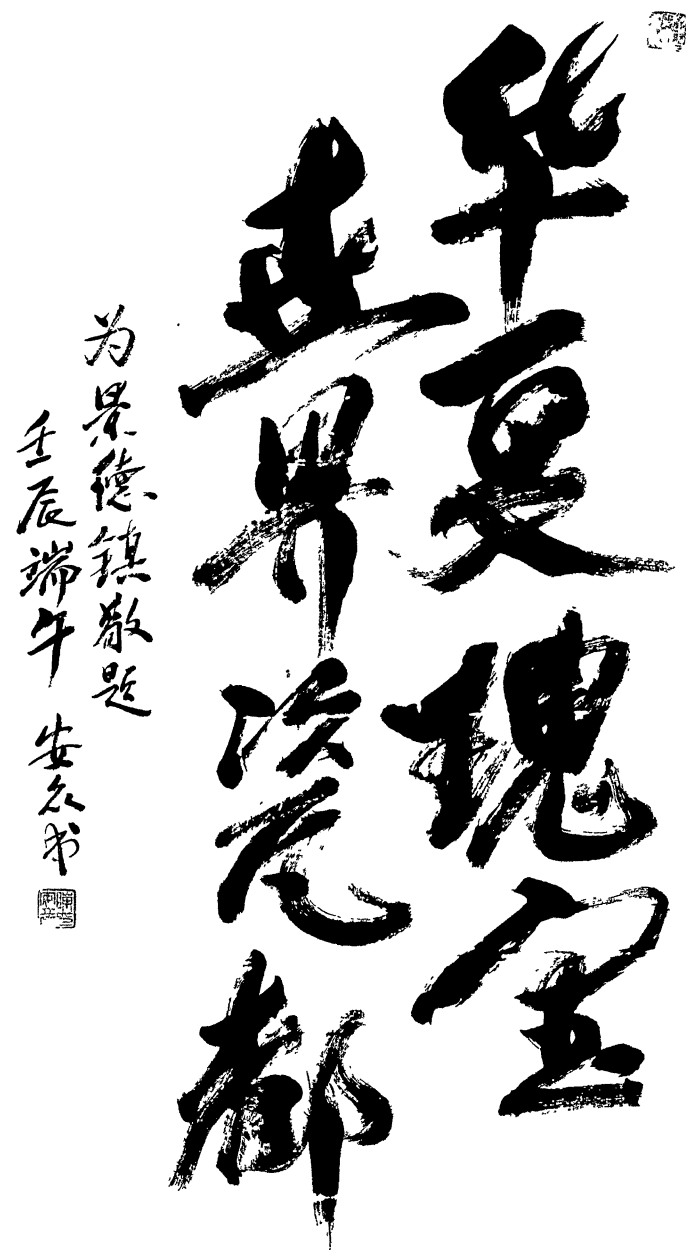 华夏瑰宝
世界瓷都
为景德镇敬题
壬辰端午 安众书